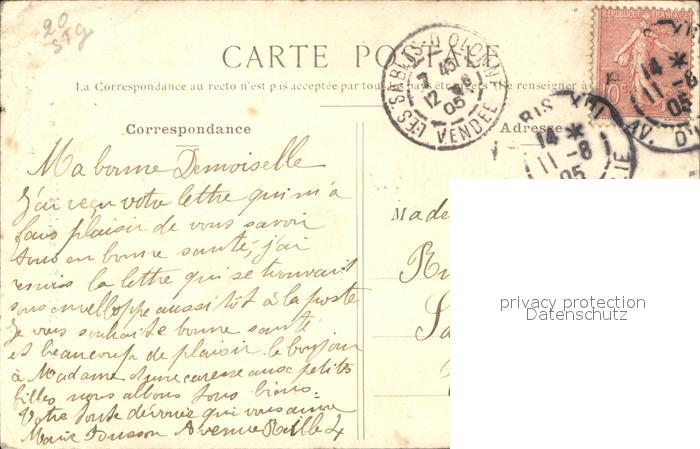 20
STG
CARTE POSTALE
La Correspondance au recto n'est pas acceptée par tous les pays étrangers (Se renseigner à
REPUBLIQUE FRANÇAISE
10c
LES SABLES-D'OLONNE
12 -8
05
VENDÉE
PARIS XVI
14 *
11 -8
05
AV. D
Correspondance
Adresse
Ma bonne Demoiselle
J'ai reçu votre lettre qui m'a
fais plaisir de vous savoir
tous en bonne santé, j'ai
remis la lettre qui se trouvait
sous envelloppe aussitôt à la poste
Je vous souhaite bonne santé
et beaucoup de plaisir le bonjour
à Madame d'une caresse aux petites
filles nous allons tous biens.
Votre toute dévouée qui vous aime
Marie Avenue 4
Made
privacy protection
Datenschutz